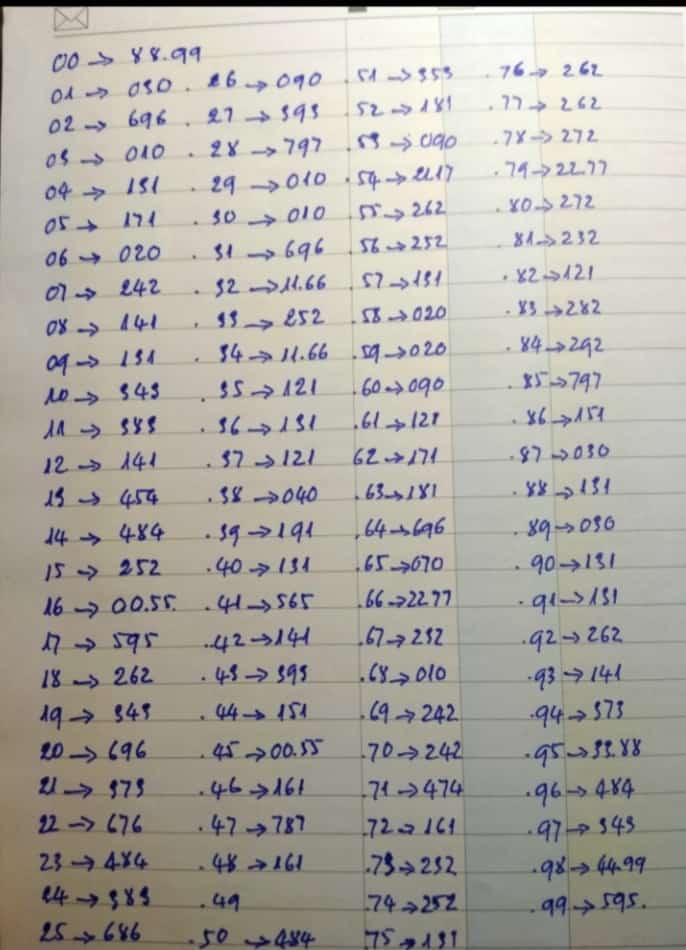 00 → 88.99
01 → 030
02 → 696
03 → 010
04 → 131
05 → 171
06 → 020
07 → 242
08 → 141
09 → 131
10 → 343
11 → 383
12 → 141
13 → 454
14 → 484
15 → 252
16 → 00.55.
17 → 595
18 → 262
19 → 343
20 → 696
21 → 373
22 → 676
23 → 484
24 → 383
25 → 686
.26 → 090
.27 → 393
.28 → 797
.29 → 010
.30 → 010
.31 → 696
.32 → 11.66
.33 → 252
.34 → 11.66
.35 → 121
.36 → 131
.37 → 121
.38 → 040
.39 → 191
.40 → 131
.41 → 565
.42 → 141
.43 → 393
.44 → 151
.45 → 00.55
.46 → 161
.47 → 787
.48 → 161
.49
.50 → 484
.51 → 353
.52 → 181
.53 → 090
.54 →
.55 → 262
.56 → 252
.57 → 131
.58 → 020
.59 → 020
.60 → 090
.61 → 121
62 → 171
.63 → 181
.64 → 696
.65 → 070
.66 → 2277
.67 → 232
.68 → 010
.69 → 242
.70 → 242
.71 → 474
.72 → 161
.73 → 232
.74 → 252
75 → 131
.76 → 262
.77 → 262
.78 → 272
.79 → 22.77
.80 → 272
.81 → 232
.82 → 121
.83 → 282
.84 → 292
.85 → 797
.86 → 151
.87 → 030
.88 → 131
.89 → 030
.90 → 131
.91 → 131
.92 → 262
.93 → 141
.94 → 373
.95 → 33.88
.96 → 484
.97 → 343
.98 → 44.99
.99 → 595.